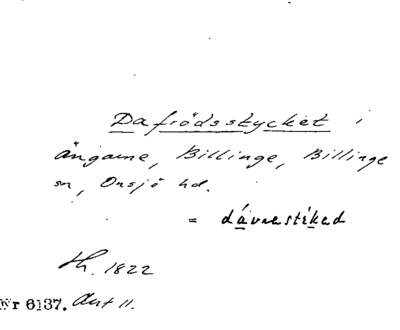 Dafrödsstycket i
ängarne, Billinge, Billinge
sn, Onsjö hd.
= dávrestíked
Sh. 1822
Nr 6137. Ant 11.